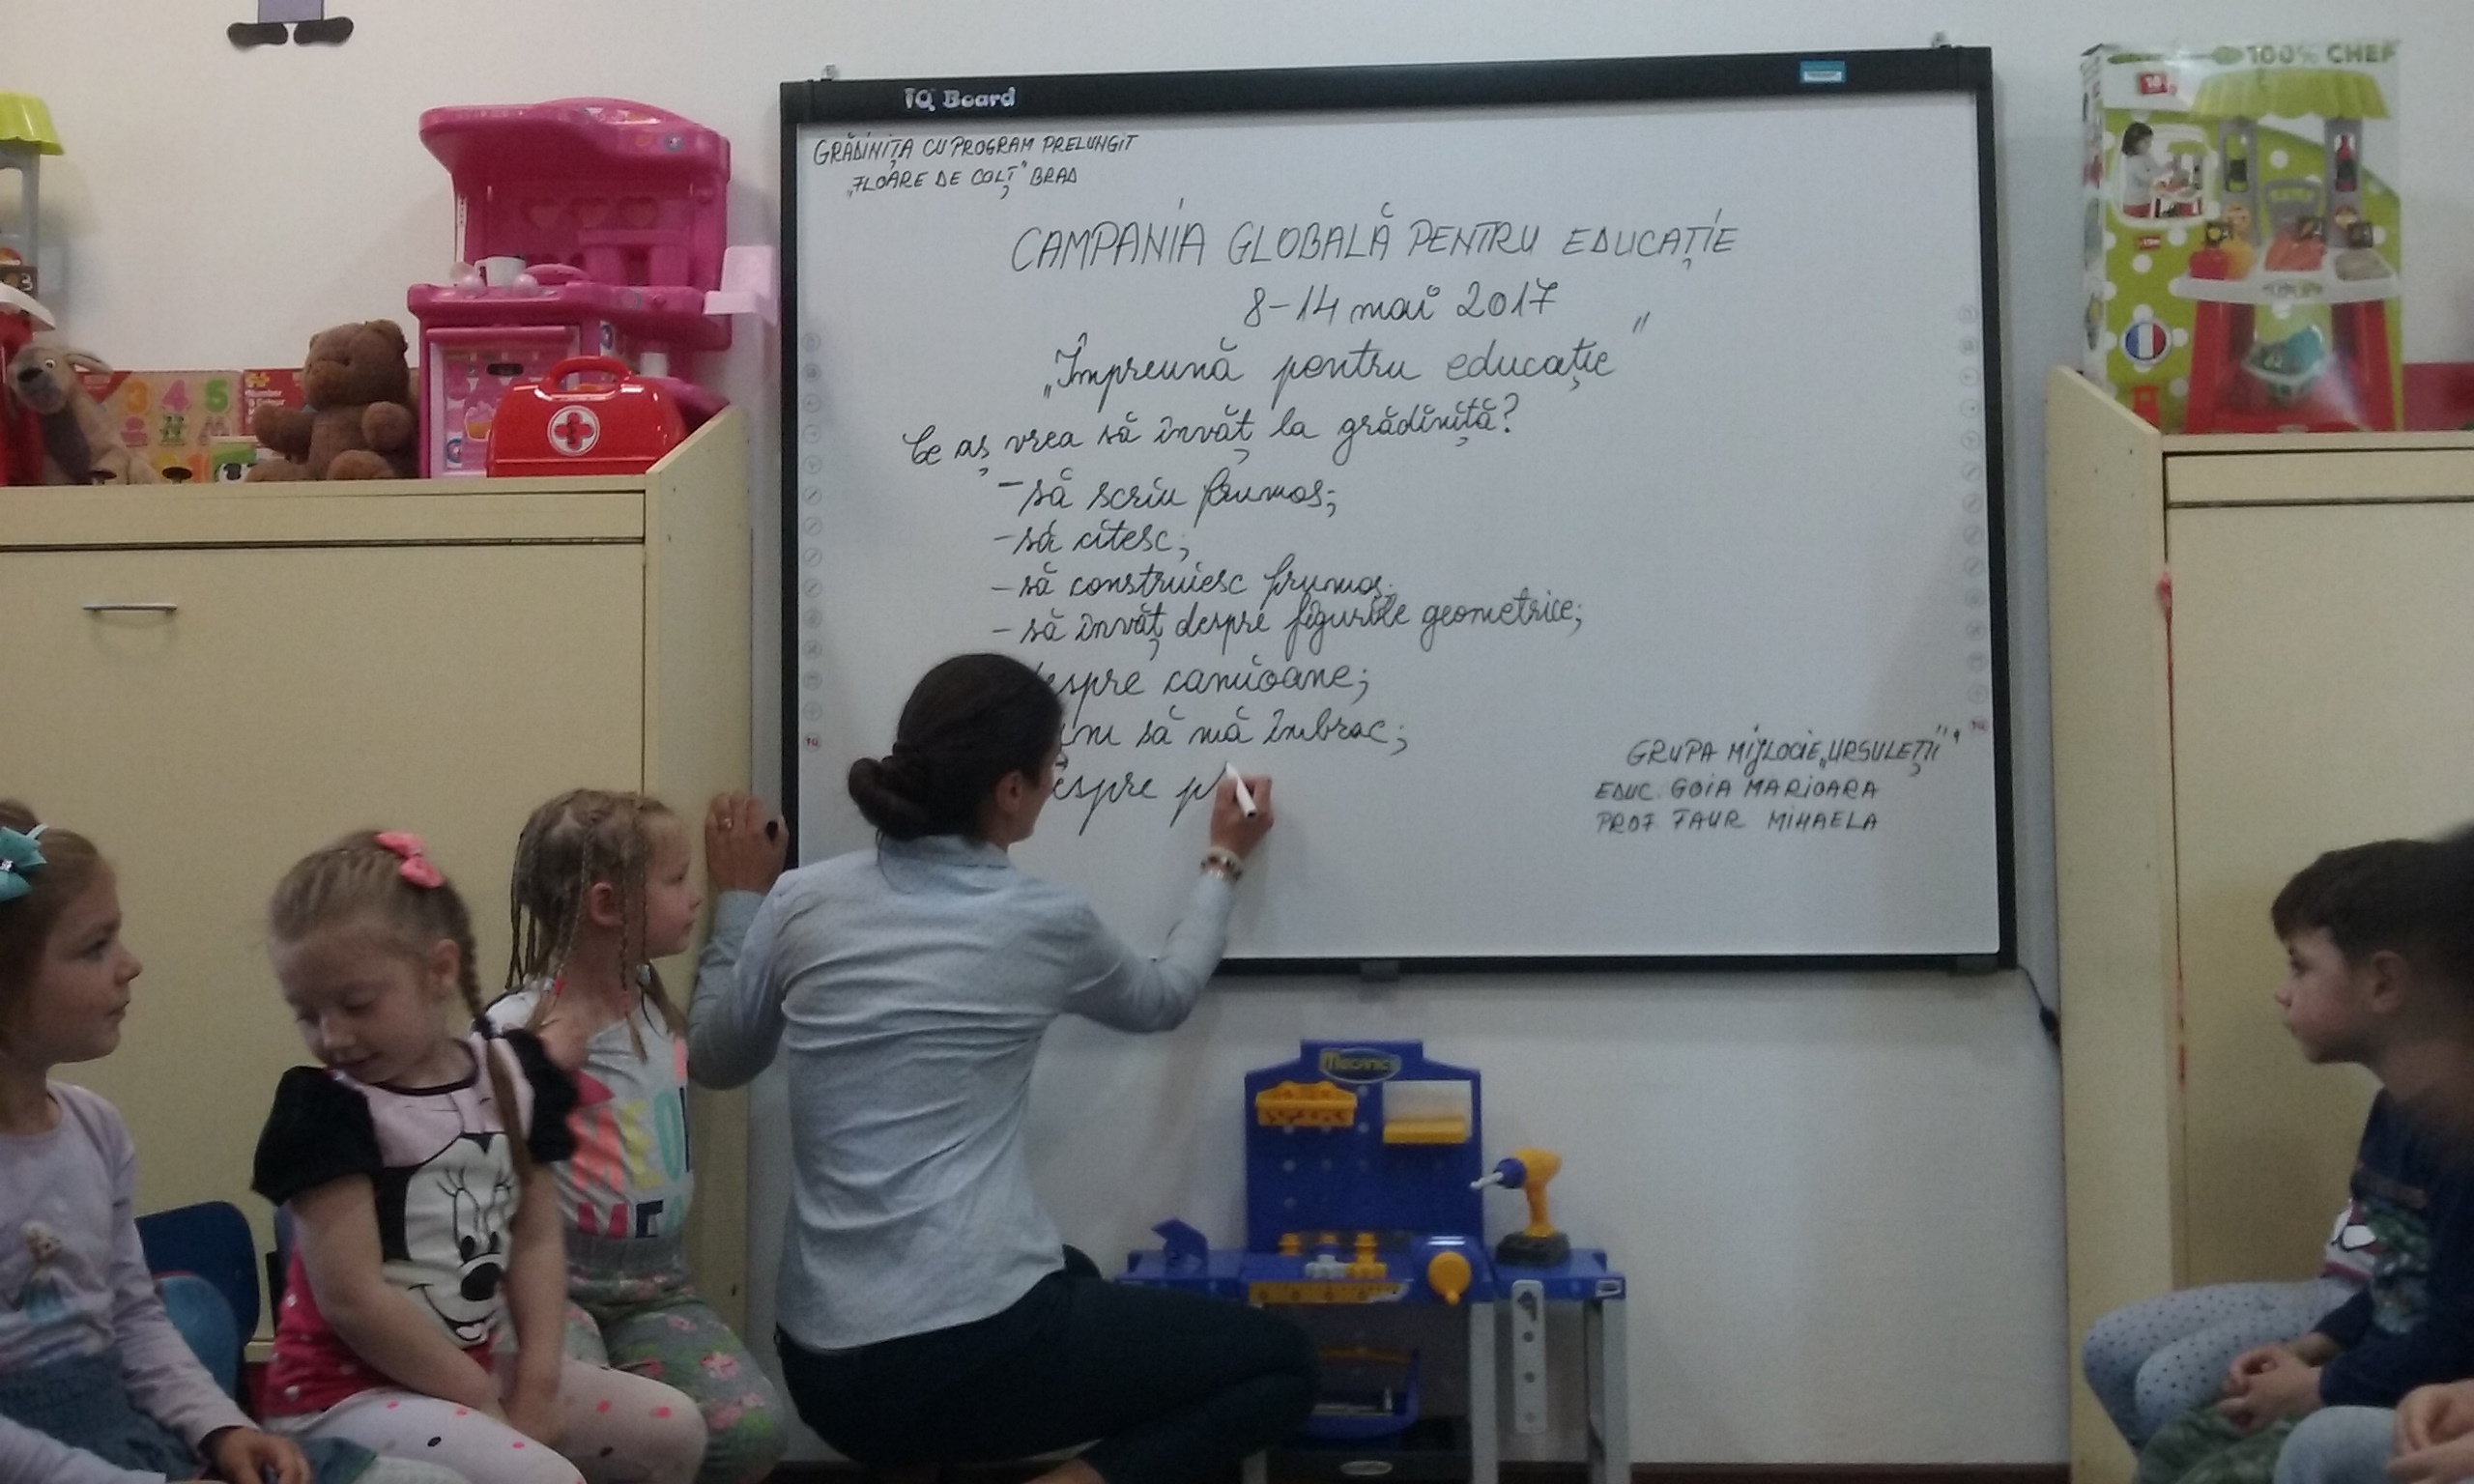 IQ Board
GRĂDINIȚA CU PROGRAM PRELUNGIT
„FLOARE DE COLȚ" BRAD
CAMPANIA GLOBALĂ PENTRU EDUCAȚIE
8-14 mai 2017
„Împreună pentru educație"
Ce aș vrea să învăț la grădiniță?
- să scriu frumos;
- să citesc;
- să construiesc frumos;
- să învăț despre figurile geometrice;
despre camioane;
să mă îmbrac;
despre p
GRUPA MIJLOCIE „URSULEȚII"
EDUC. GOIA MARIOARA
PROF. FAUR MIHAELA
100% CHEF
3 4 5
Mecanics